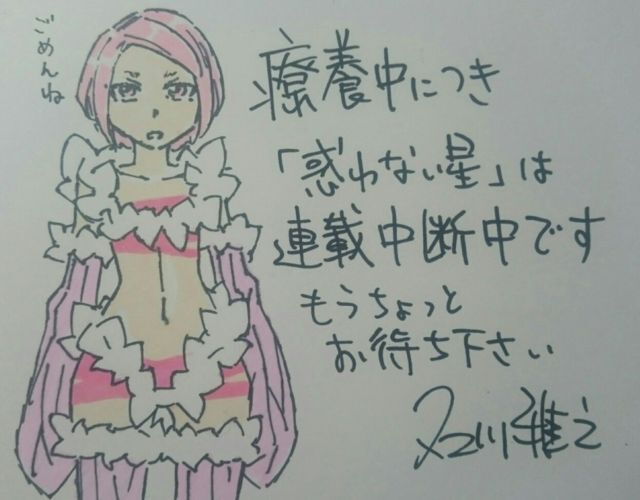 ごめんね
療養中につき
「惑わない星」は
連載中断中です
もうちょっと
お待ち下さい
石川雅之